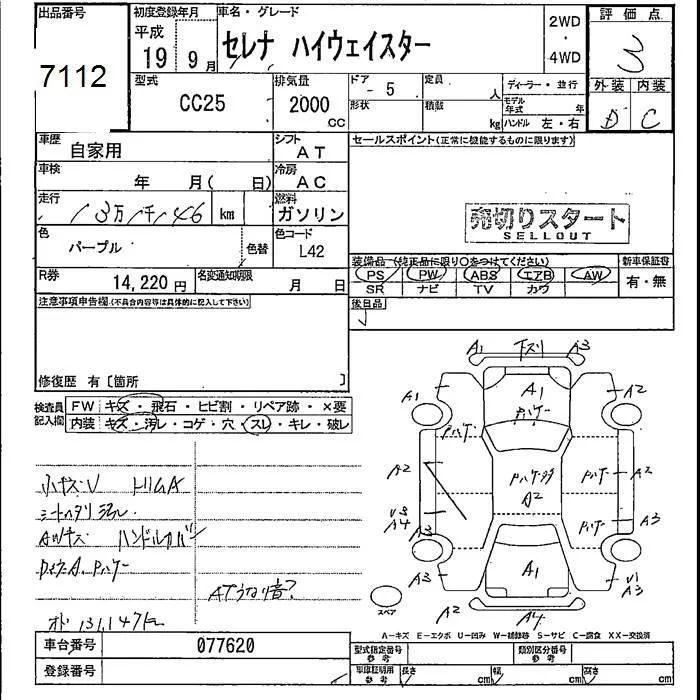 出品番号
7112
初度登録年月
平成
19 9月
車名・グレード
セレナ ハイウェイスター
2WD
・
4WD
評価点
3
外装 内装
D C
型式
CC25
排気量
2000
CC
ドア
- 5
定員
人
形状
積載
kg
ディーラー・並行
モデル年式 年
ハンドル 左・右
車歴
自家用
シフト
AT
車検
年 月( 日)
冷房
AC
走行
km
燃料
ガソリン
色
パープル
色替
色コード
L42
R券
14,220 円
名変通知期限
月 日
セールスポイント(正常に機能するものに限ります)
売切りスタート
SELLOUT
装備品 (純正品に限り○をつけてください)
PS PW ABS エアB AW
SR ナビ TV カワ
新車保証書
有・無
後日品
注意事項申告欄(不具合内容等は具体的に記入して下さい)
修復歴 有〔箇所 〕
検査員
記入欄
FW キズ・飛石・ヒビ割・リペア跡・×要
内装 キズ・汚レ・コゲ・穴・スレ・キレ・破レ
小キズV
AWキズ ハンドルカバー
ATうなり音?
131,147
A1 下スリ A3
A1 A1 A2
A2 A2 A2
A4 A3 A3
A3 A1 A3
A2 A4
スペア
A-キズ E-エクボ U-凹み W-補修跡 S-サビ C-腐食 XX-交換済
車台番号
077620
登録番号
型式指定番号
参考
類別区分番号
参考
車庫証明用
参考
長さ cm
幅 cm
高さ cm